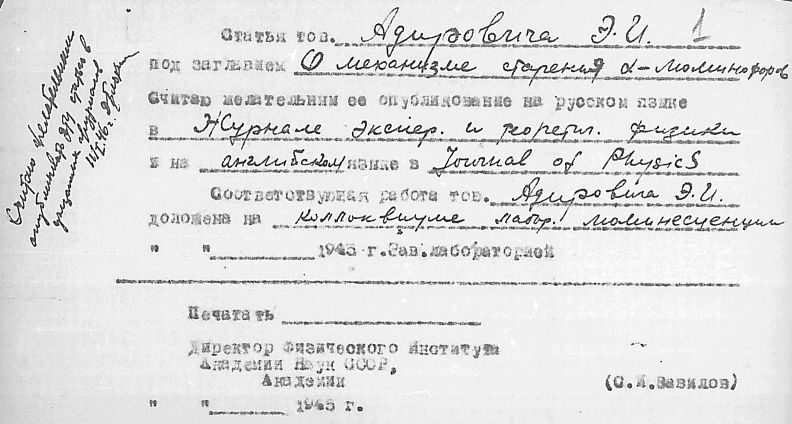 Статья тов. Адировича Э.И. 1
под заглавием О механизме старения α-люминофоров
Считаю желательным ее опубликование на русском языке
в Журнале экспер. и теоретич. физики
и на английском языке в Journal of Physics
Соответствующая работа тов. Адировича Э.И.
доложена на коллоквиуме лабор. люминесценции
" " 1945 г. Зав. лабораторией
Печатать
Директор Физического Института
Академии Наук СССР,
Академик
(С.И.Вавилов)
" " 1945 г.
Считаю целесообразным
опубликовать эту статью в
журнале